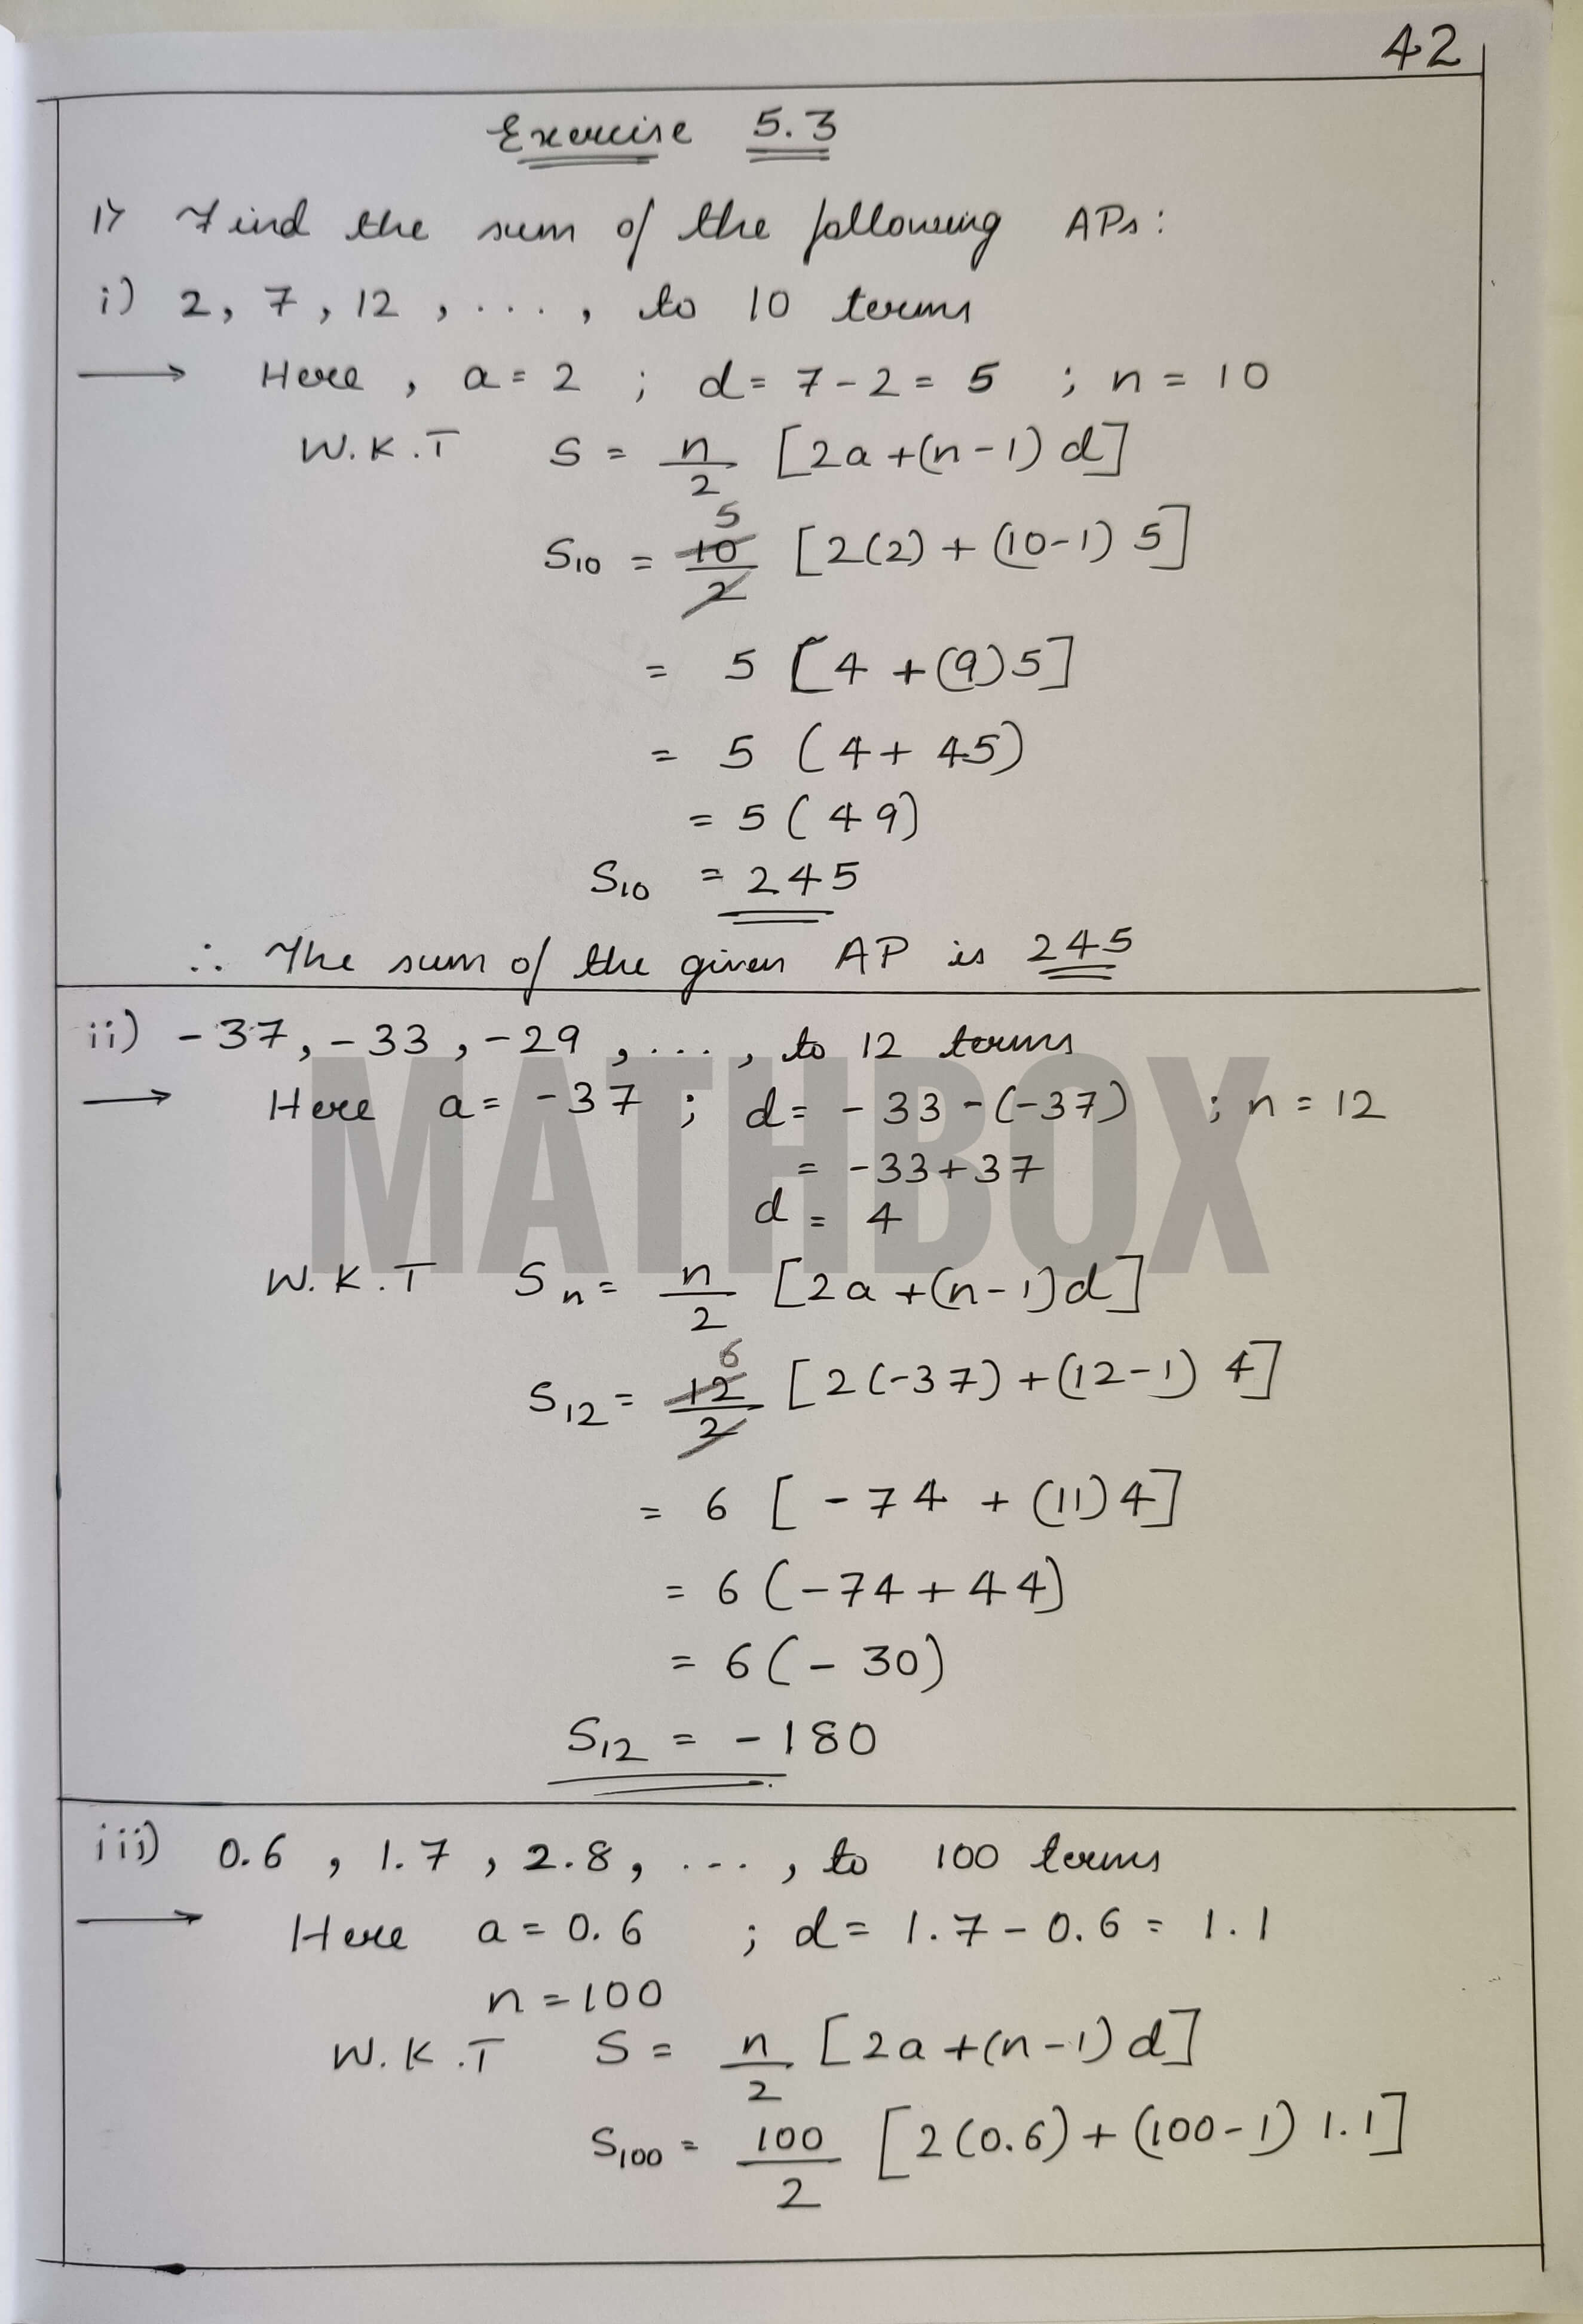 42
Exercise 5.3
1) Find the sum of the following APs:
i) 2, 7, 12, ..., to 10 terms
→ Here, a = 2 ; d = 7 - 2 = 5 ; n = 10
W.K.T S = n/2 [2a + (n-1) d]
5
S10 = 10/2 [2(2) + (10-1) 5]
= 5 [4 + (9)5]
= 5 (4 + 45)
= 5 (49)
S10 = 245
∴ The sum of the given AP is 245
ii) -37, -33, -29, ..., to 12 terms
→ Here a = -37 ; d = -33 - (-37) ; n = 12
= -33 + 37
d = 4
MATHBOX
W.K.T Sn = n/2 [2a + (n-1)d]
6
S12 = 12/2 [2(-37) + (12-1) 4]
= 6 [-74 + (11)4]
= 6 (-74 + 44)
= 6 (-30)
S12 = -180
iii) 0.6, 1.7, 2.8, ..., to 100 terms
→ Here a = 0.6 ; d = 1.7 - 0.6 = 1.1
n = 100
W.K.T S = n/2 [2a + (n-1) d]
S100 = 100/2 [2(0.6) + (100-1) 1.1]